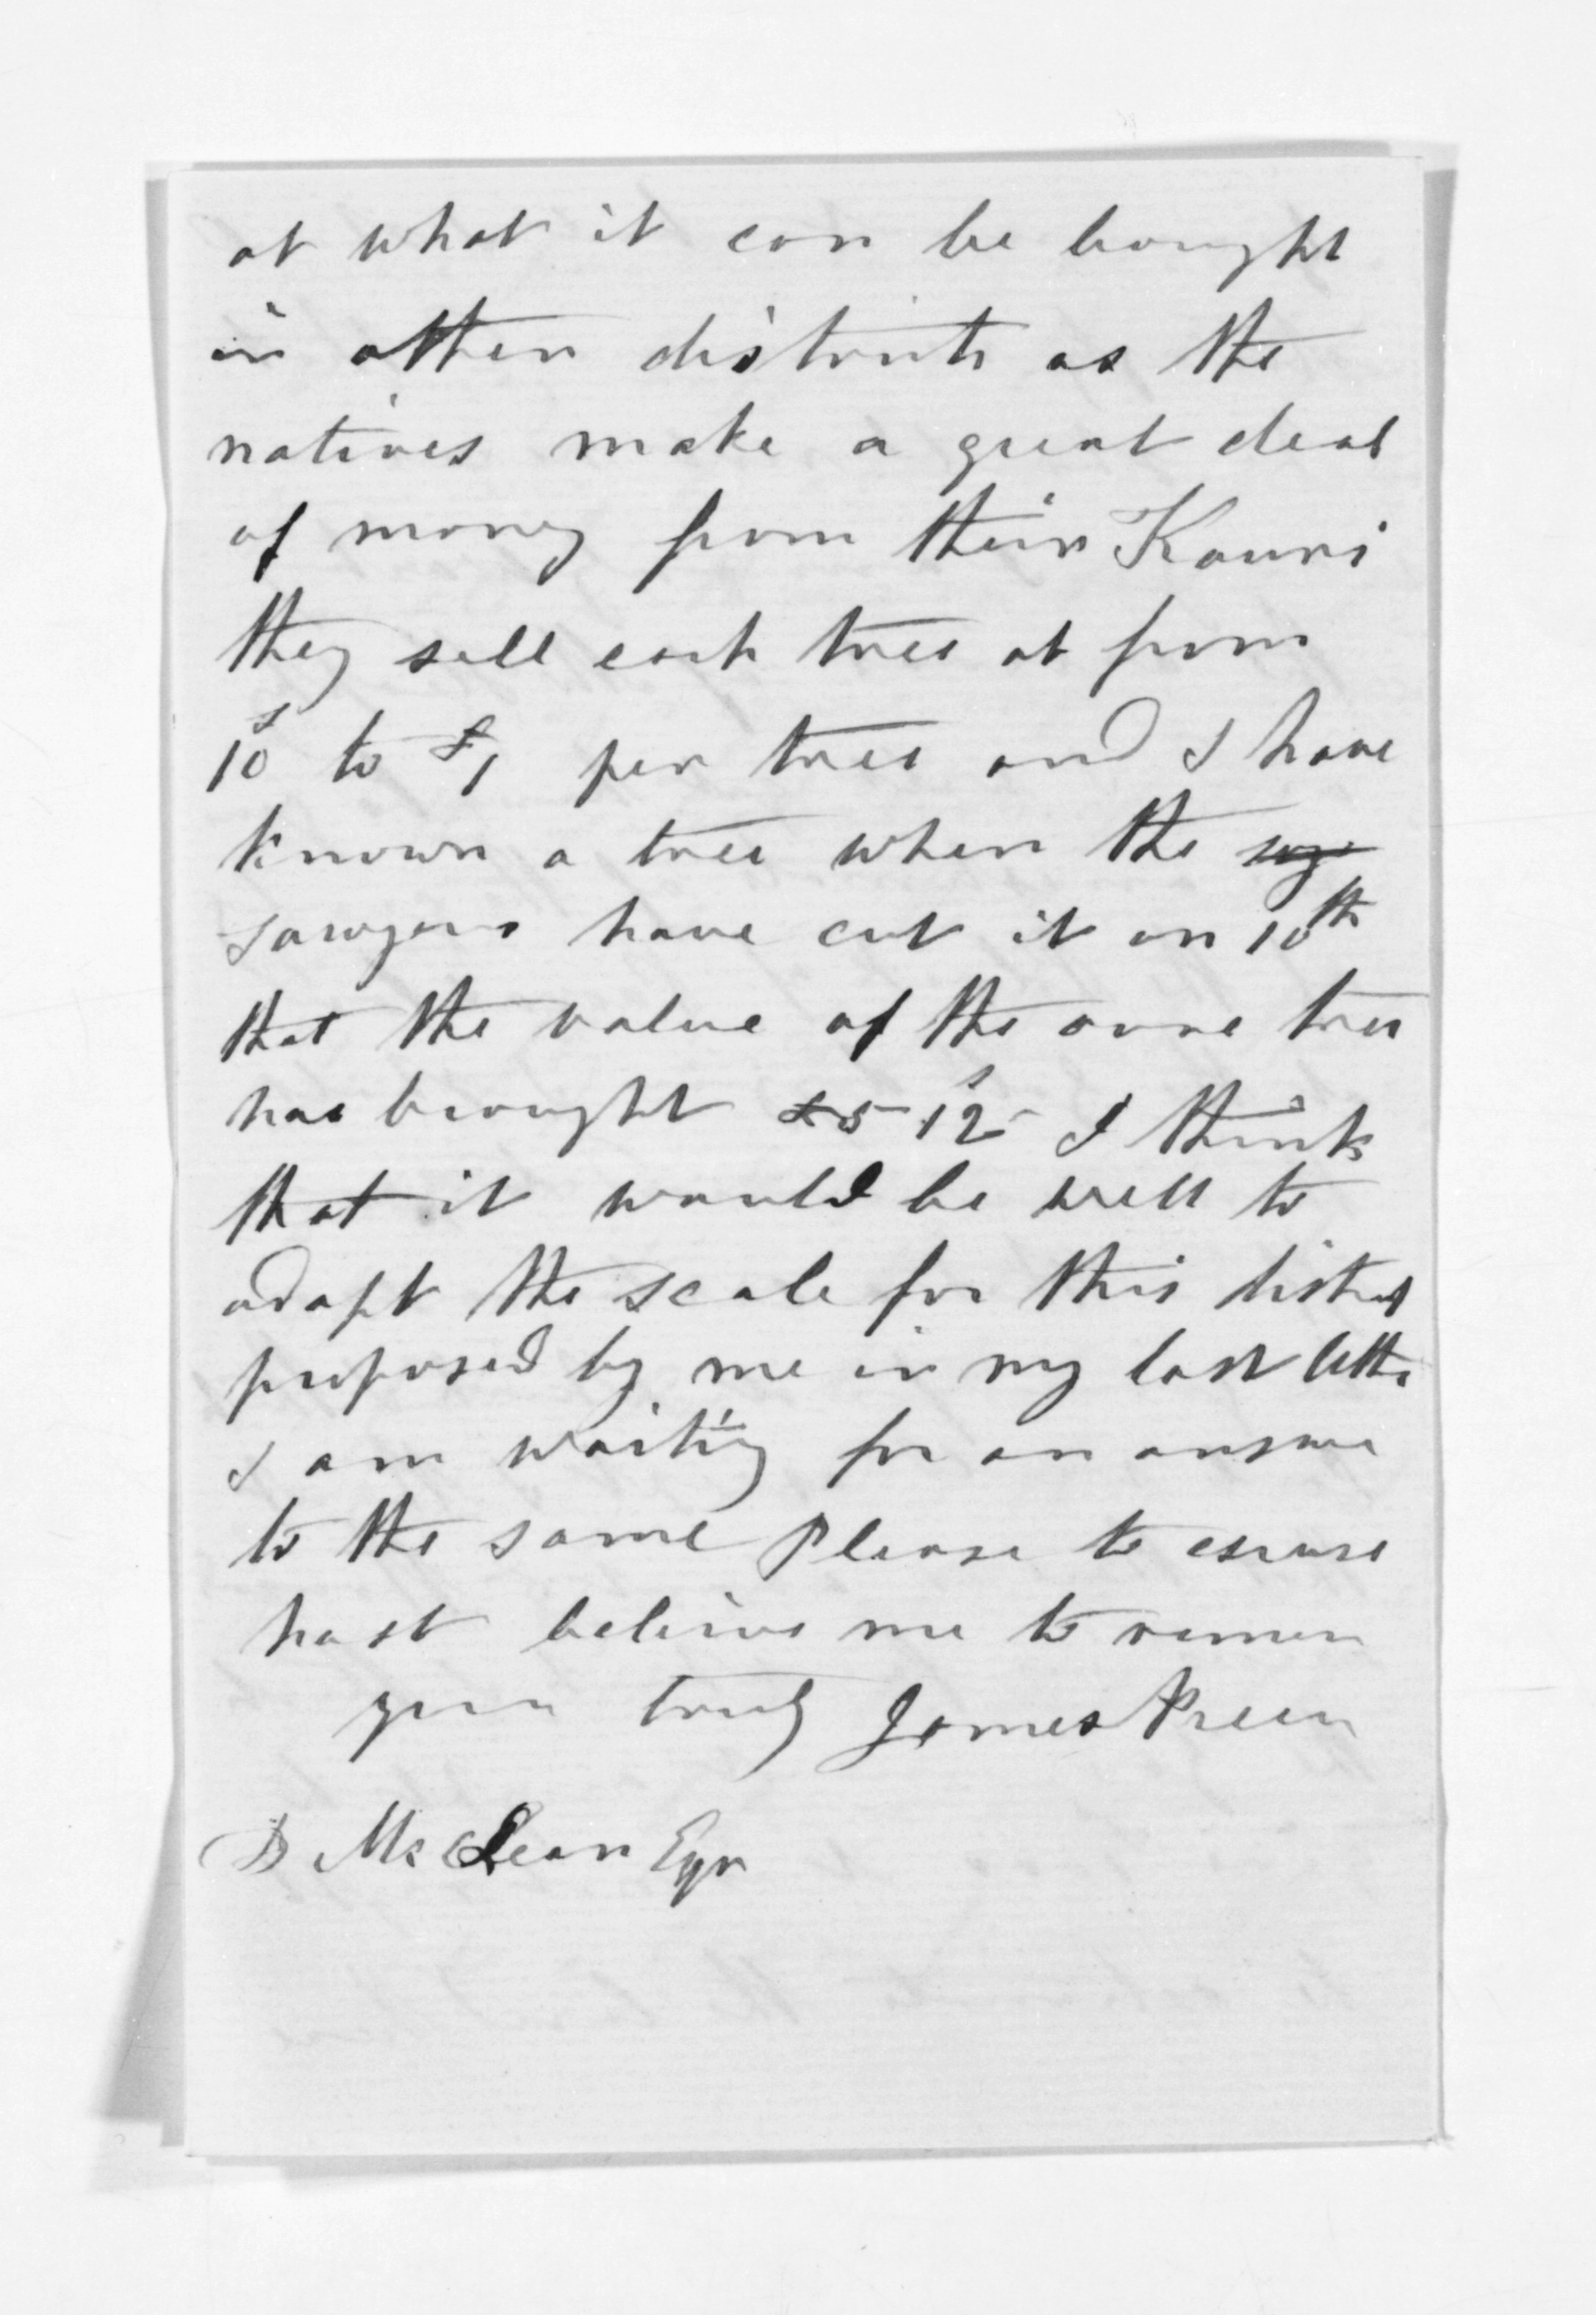 at what it can be bought
in other districts as the
natives make a great deal
of money from their Kauri
they sell each tree at from
10s to £1 per tree and I have
known a tree when the
sawyers have cut it on 10th
that the value of the one tree
has brought £5-12s- I think
that it would be well to
adopt the scale for this district
proposed by me in my last letter
I am waiting for an answer
to the same Please to excuse
hast believe me to remain
your truly James Preece
D McLean Eqr